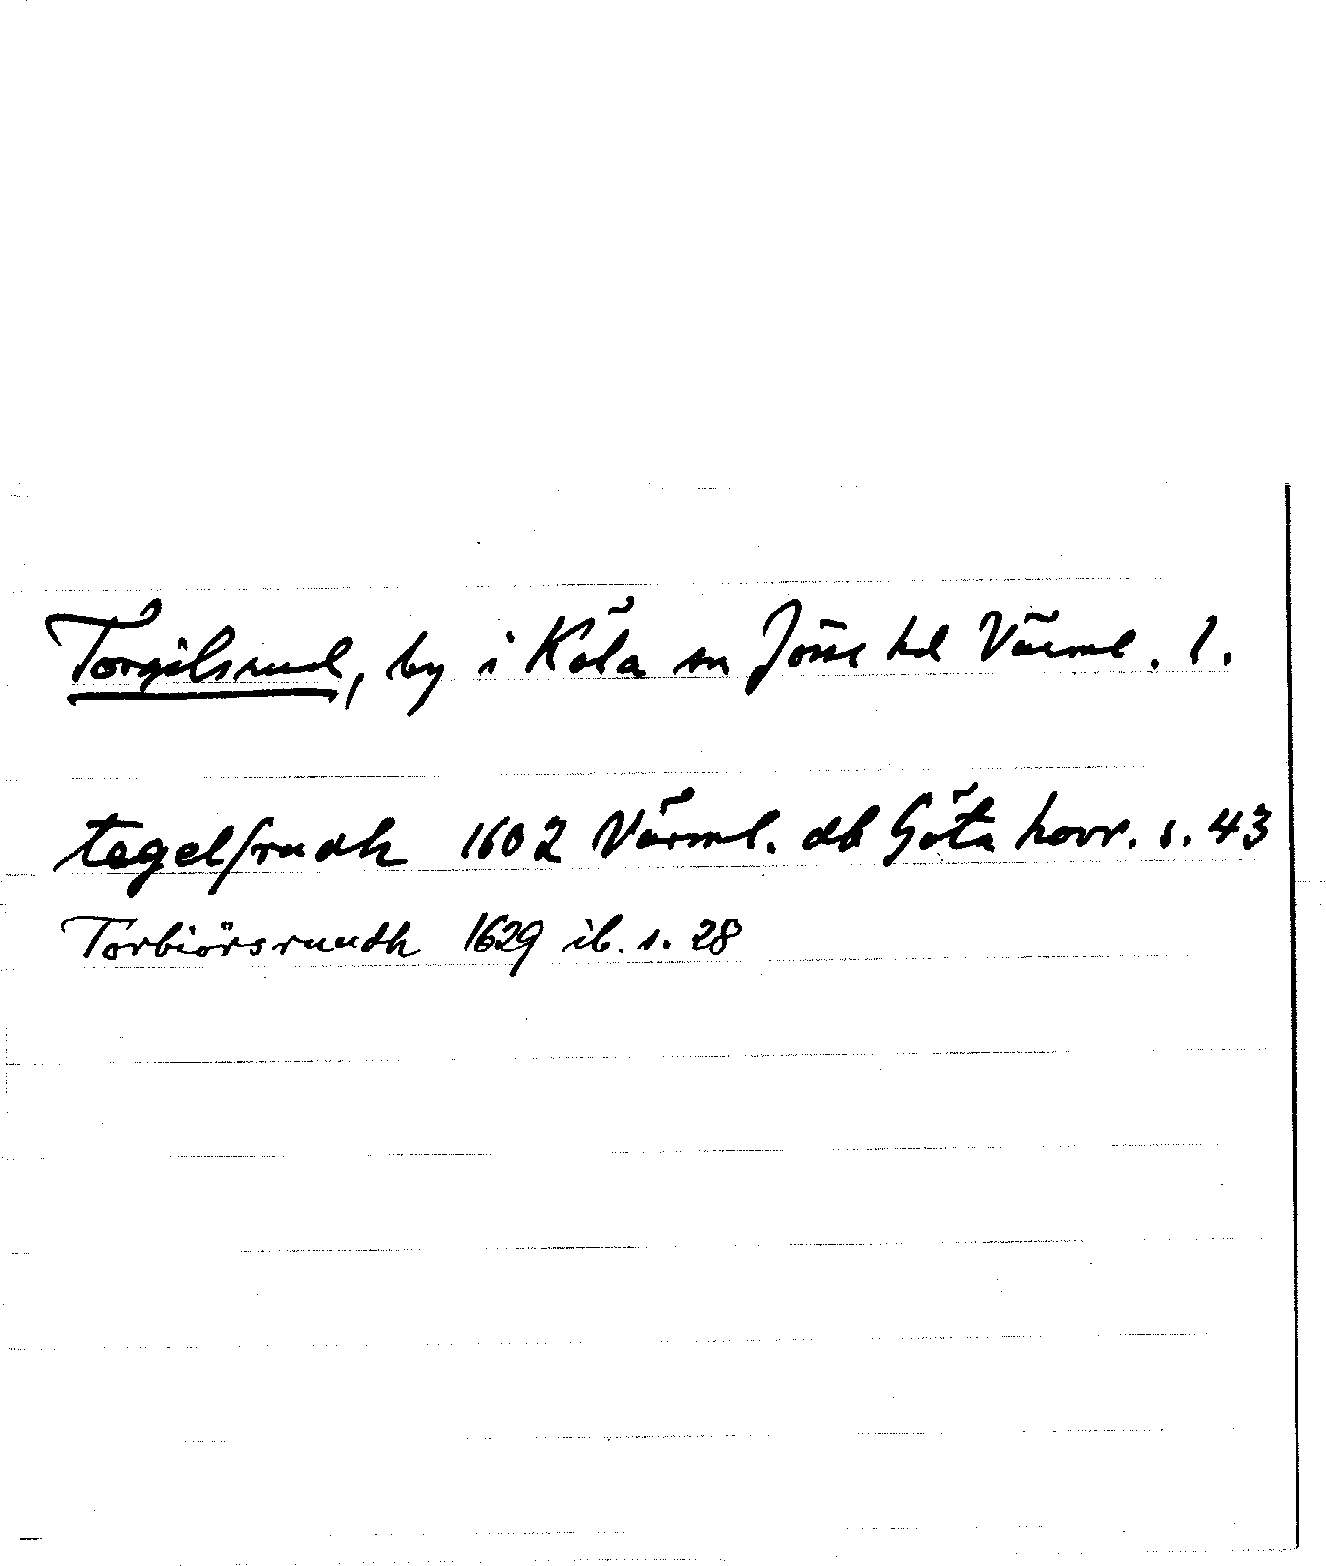 Torgilsrud, by i Köla sn Jösse hd Värml. l.
tegelſrudh 1602 Värml. db Göta hovr. s. 43
Torbiörsruudh 1629 ib. s. 28